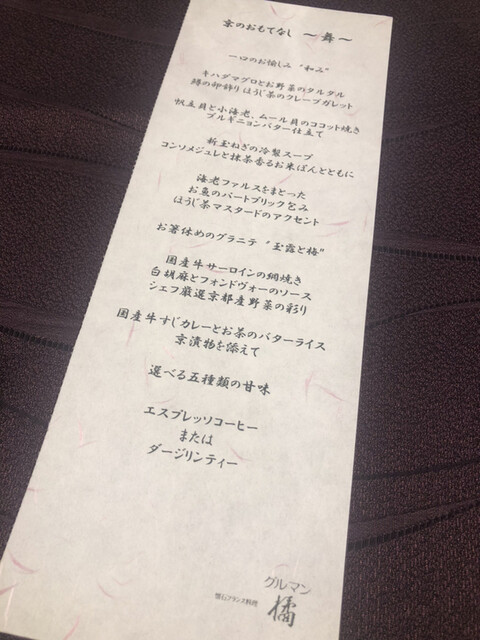 京のおもてなし ～舞～
一口のお愉しみ "和み"
キハダマグロとお野菜のタルタル
鱒の卵飾り ほうじ茶のクレープガレット
帆立貝と小海老、ムール貝のココット焼き
ブルギニョンバター仕立て
新玉ねぎの冷製スープ
コンソメジュレと抹茶香るお米ぽんとともに
海老ファルスをまとった
お魚のパートブリック包み
ほうじ茶マスタードのアクセント
お箸休めのグラニテ "玉露と梅"
国産牛サーロインの網焼き
白胡麻とフォンドヴォーのソース
シェフ厳選京都産野菜の彩り
国産牛すじカレーとお茶のバターライス
京漬物を添えて
選べる五種類の甘味
エスプレッソコーヒー
または
ダージリンティー
懐石フランス料理
グルマン
橘